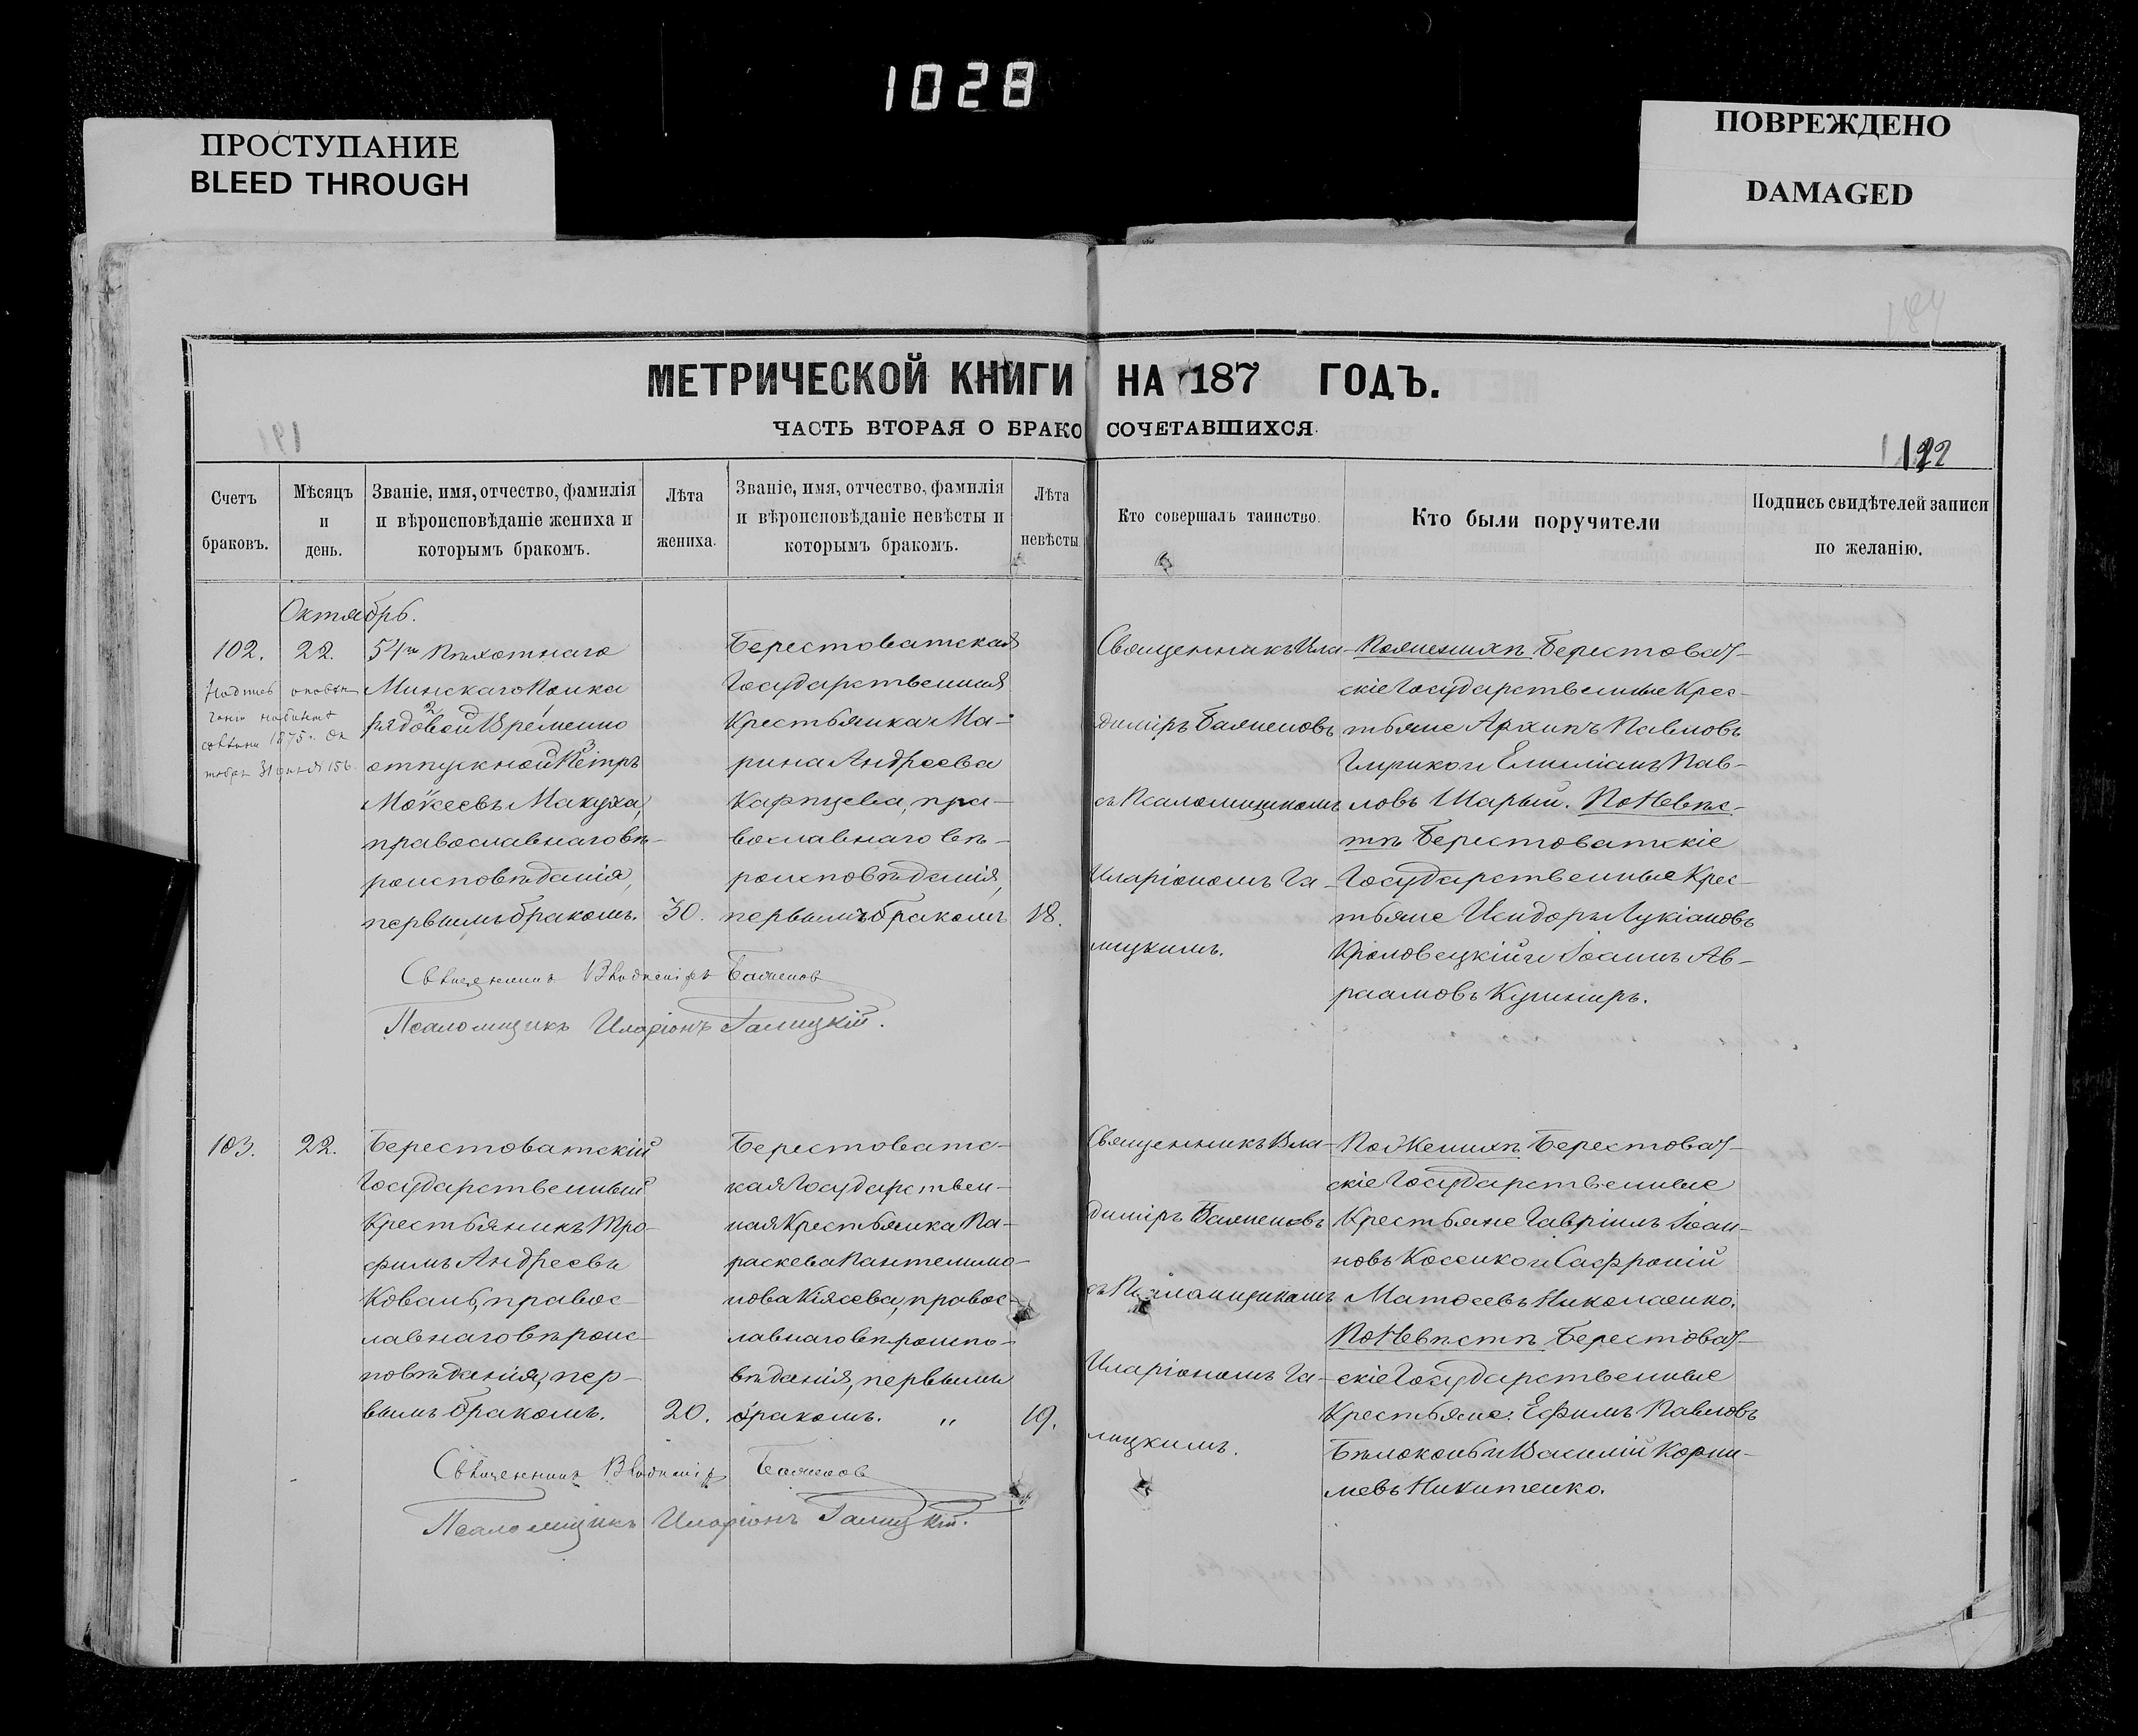 1028
ПРОСТУПАНИЕ
BLEED THROUGH
ПОВРЕЖДЕНО
DAMAGED
МЕТРИЧЕСКОЙ КНИГИ НА 187 ГОДЪ.
ЧАСТЬ ВТОРАЯ О БРАКОСОЧЕТАВШИХСЯ.
122
Счетъ браковъ.
Мѣсяцъ и день.
Званіе, имя, отчество, фамилія и вѣроисповѣданіе жениха и которымъ бракомъ.
Лѣта жениха.
Званіе, имя, отчество, фамилія и вѣроисповѣданіе невѣсты и которымъ бракомъ.
Лѣта невѣсты
Кто совершалъ таинство.
Кто были поручители
Подпись свидѣтелей записи по желанію.
Октябрь.
102.
22.
1875
54го Пѣхотнаго
Минскаго Полка
рядовой Временно
отпускной Петръ
Мокеевъ Макуха,
православнаго вѣ-
роисповѣданія,
первымъ бракомъ.
30.
Берестоватская
Государственная
Крестьянка Ма-
рина Андреева
Карпцева, пра-
вославнаго вѣ-
роисповѣданія,
первымъ бракомъ
18.
Священникъ Вла-
димиръ Баженовъ
съ Псаломщикомъ
Иларіономъ Га-
лицкимъ.
По женихѣ Берестоват-
скіе Государственные Крес-
тьяне Архипъ Павловъ
и Емиліанъ Пав-
ловъ Шарый. По Невѣс-
тѣ Берестоватскіе
Государственные Крес-
тьяне Исидоръ Лукіановъ
Кроловецкій и Іоаннъ Ав-
раамовъ Кушниръ.
Священникъ Владиміръ Баженовъ
Псаломщикъ Иларіонъ Галицкій.
103.
22.
Берестоватскій
Государственный
Крестьянинъ Тро-
фимъ Андреевъ
Коваль, правос-
лавнаго вѣроис-
повѣданія, пер-
вымъ бракомъ.
20.
Берестоватс-
кая Государствен-
ная Крестьянка Па-
раскева Пантелимо-
нова Кіяева, правос-
лавнаго вѣроиспо-
вѣданія, первымъ
бракомъ. „
19.
Священникъ Вла-
димиръ Баженовъ
съ Псаломщикомъ
Иларіономъ Га-
лицкимъ.
По Женихѣ Берестоват-
скіе Государственные
Крестьяне Гавріилъ Іоан-
новъ Косенко и Сафроній
Матѳеевъ Николаенко.
По Невѣстѣ Берестоват-
скіе Государственные
Крестьяне: Ефимъ Павловъ
Бѣлоконь и Василій Корни-
левъ Никитенко.
Священникъ Владиміръ Баженовъ
Псаломщикъ Иларіонъ Галицкій.